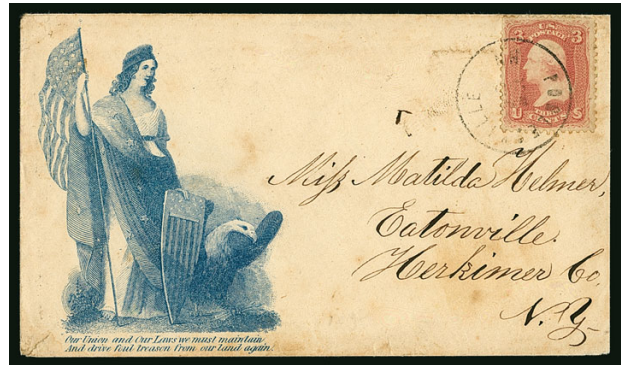 U.S. POSTAGE
3 3
THREE CENTS
U S
Miss Matilda Helmer,
Eatonville.
Herkimer Co,
N. Y.
Our Union and Our Laws we must maintain
And drive foul treason from our land again.